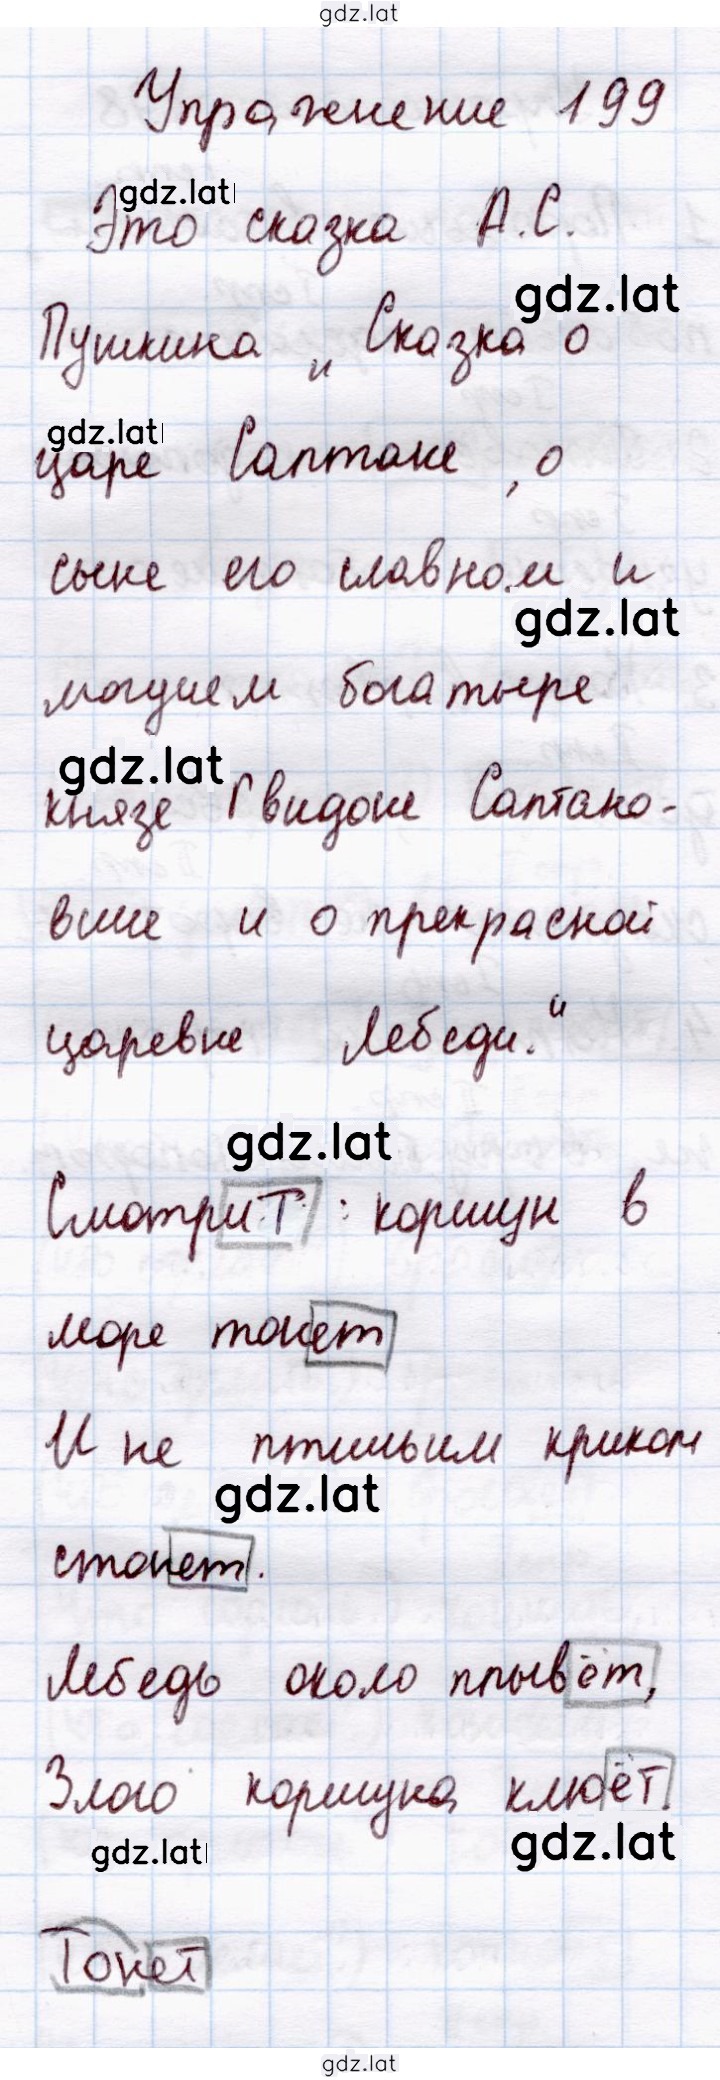 gdz.lat
Упражнение 199
gdz.lat
Это сказка А.С.
gdz.lat
Пушкина „Сказка о
gdz.lat
царе Салтане, о
сыне его славном и
gdz.lat
могучем богатыре
gdz.lat
князе Гвидоне Салтано-
виче и о прекрасной
царевне Лебеди."
gdz.lat
Смотрит: коршун в
море тонет
И не птичьим криком
gdz.lat
стонет.
Лебедь около плывёт,
Злого коршуна клюёт.
gdz.lat
gdz.lat
Тонет
gdz.lat